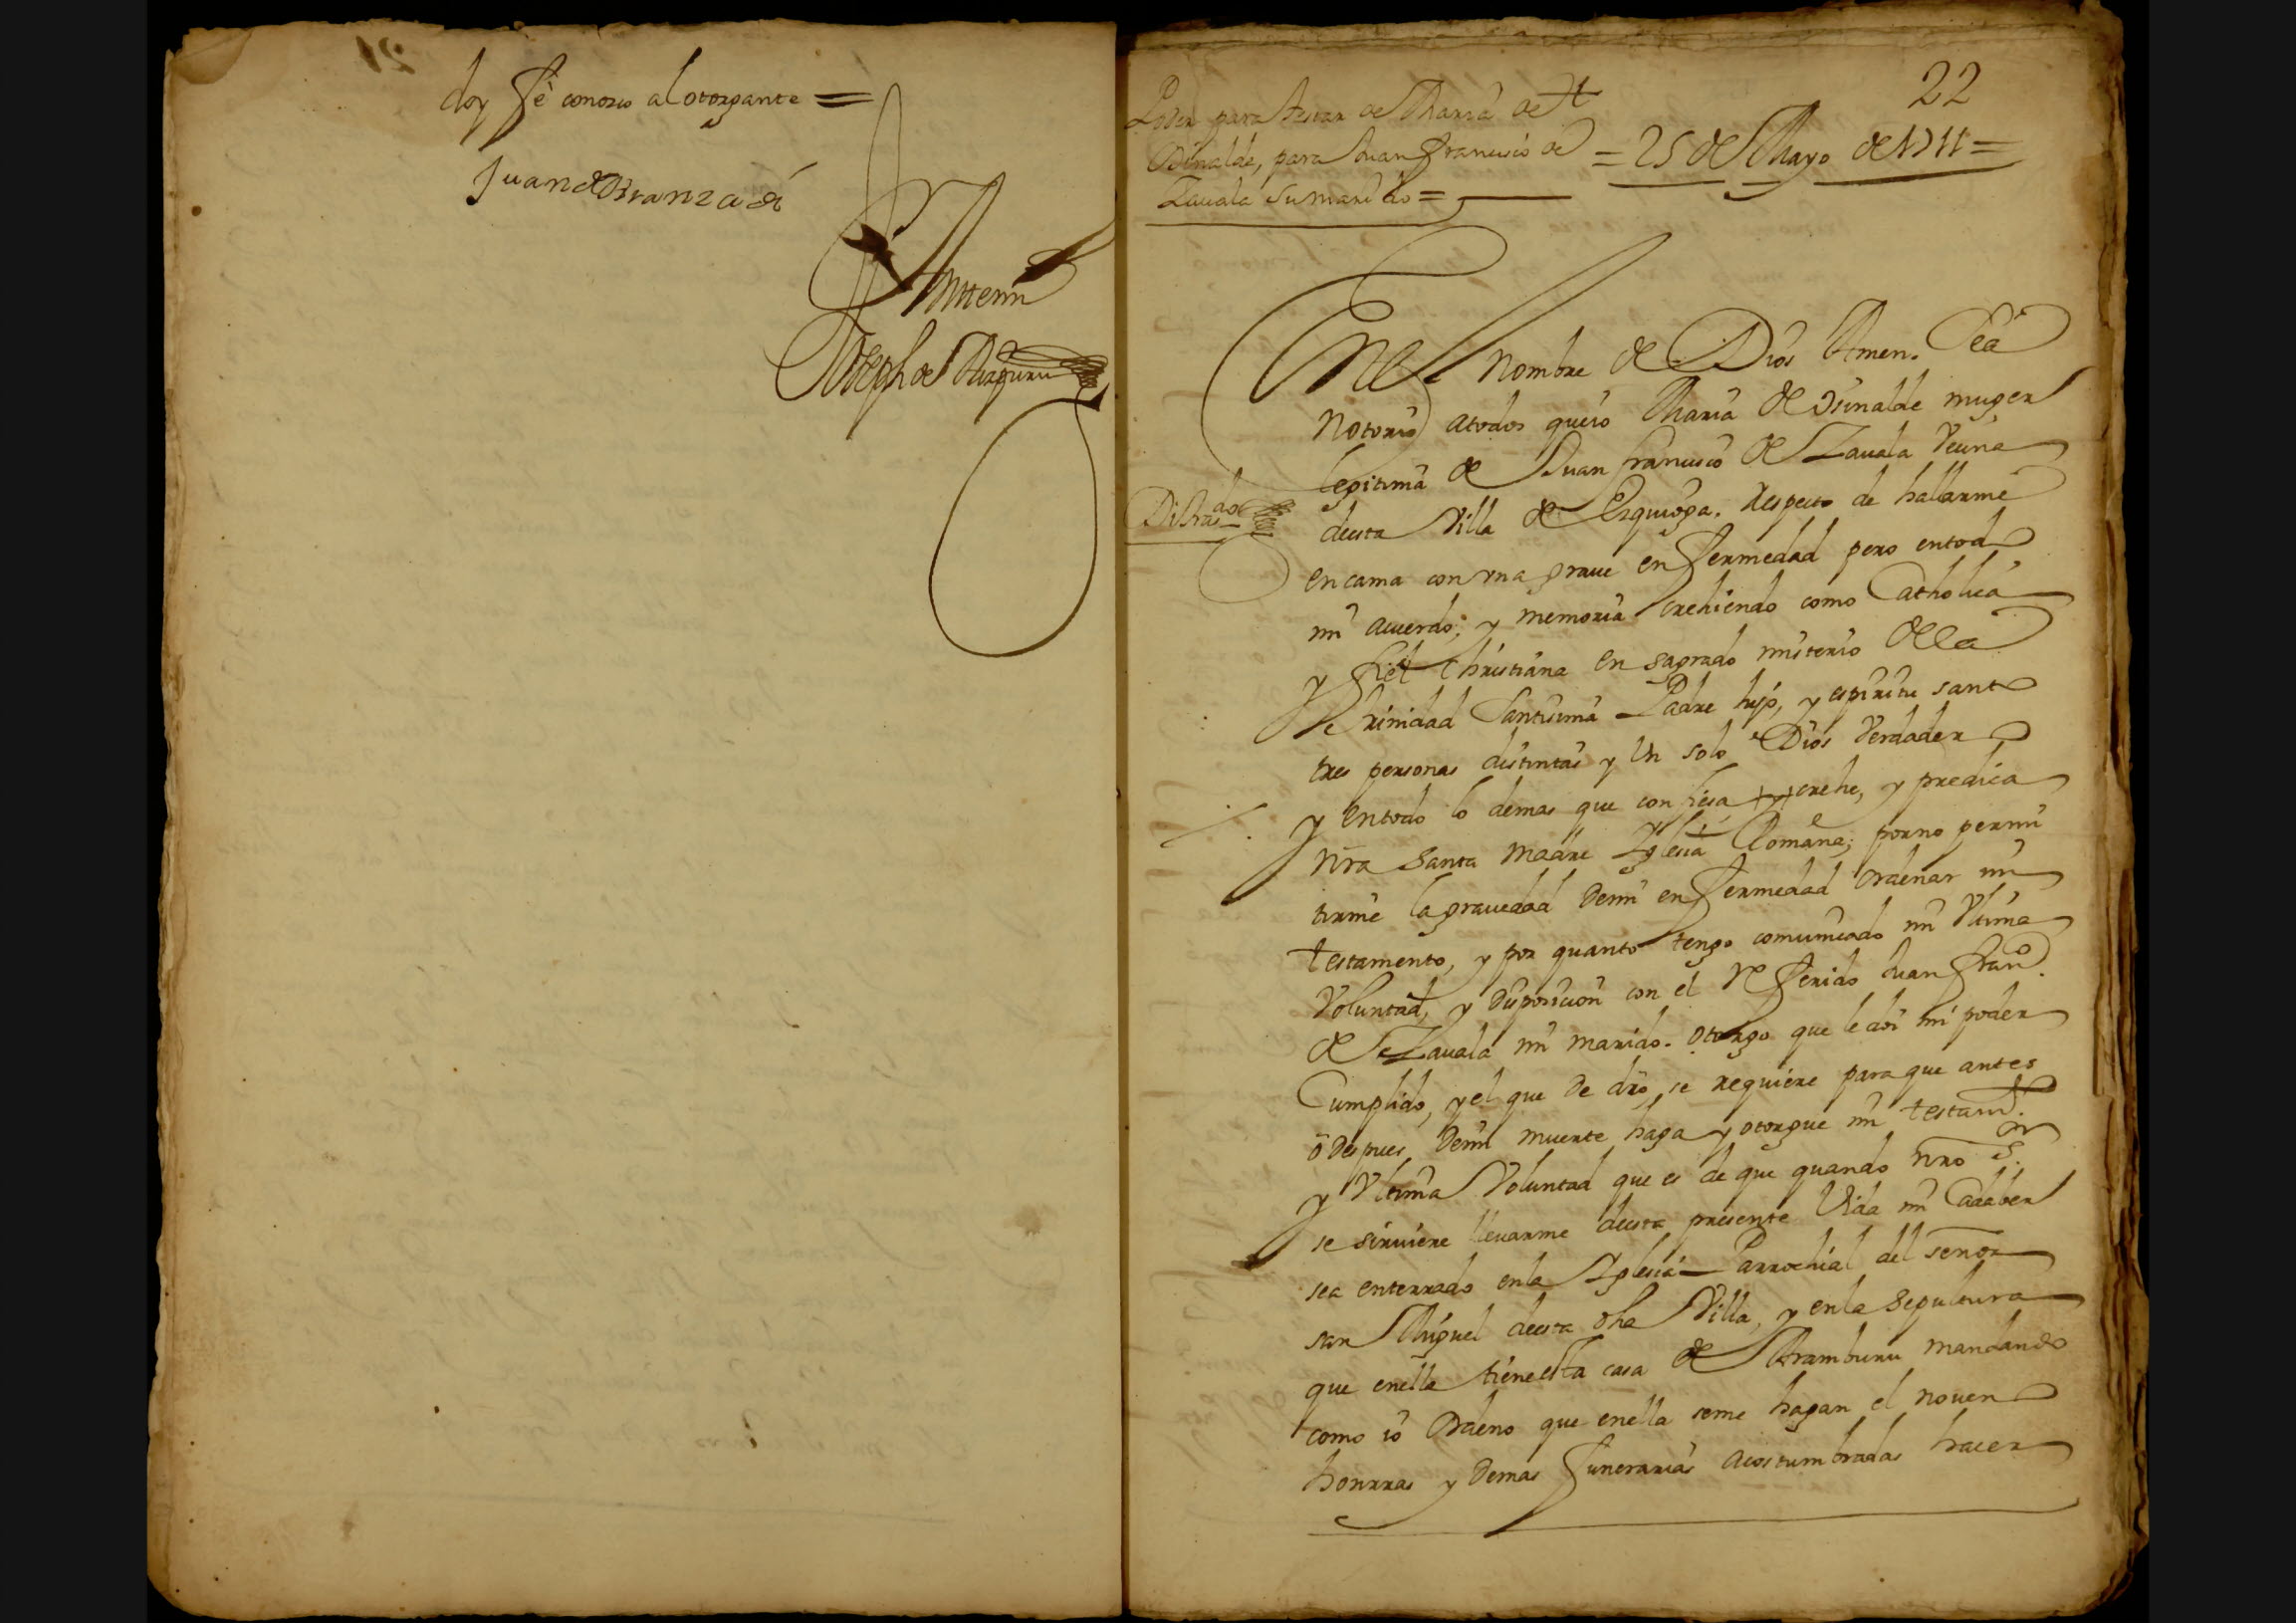 doy fê conozco al otorgante =
Juan de Aranzadi
Antemi
Joseph de Aizpuru
22
Poder para testar de Maria de
Osinalde, para Juan Francisco de
Zauala su marido =
= 25 de Mayo de 1711 =
En el Nombre de Dios Amen. Sea
Notorio atodos que io Maria de Osinalde muger
legitima de Juan francisco de Zauala Vecina
de esta Villa de Ezquioga. Respecto de hallarme
en cama con vna graue enfermedad pero entodo
mi acuerdo, y memoria crehiendo como Catholica
y fiel Christiana en sagrado misterio de la
Trinidad Santisima Padre hijo, y espiritu santo
tres personas distintas y Un solo Dios Verdadero
y entodo lo demas que confiesa, crehe, y predica
nra Santa Madre Iglesia Romana; por no permi
tirme la grauedad demi enfermedad Ordenar mi
testamento, y por quanto tengo comunicado mi Vltima
Voluntad, y Disposicion con el Referido Juan Franco.
de Zauala mi marido. Otorgo que le doi mi poder
Cumplido, y el que de dro, se requiere para que antes
ô Despues, Demi muerte haga y otorgue mi testamto.
y Vltima Voluntad que es de que quando nro Sr.
se siruiere lleuarme de esta presente Vida mi Cadaber
sea enterrado en la Iglesia Parrochial del señor
san Miguel de esta dha Villa, y en la Sepultura
que en ella tiene esta casa de Aramburu mandando
como io Ordeno que en ella seme hagan el noueno
honrras y Demas funerarias acostumbradas hacer